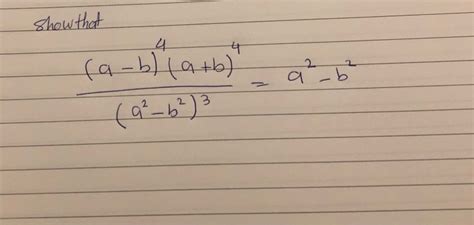 Show that
(a-b)⁴(a+b)⁴
(a²-b²)³
= a²-b²